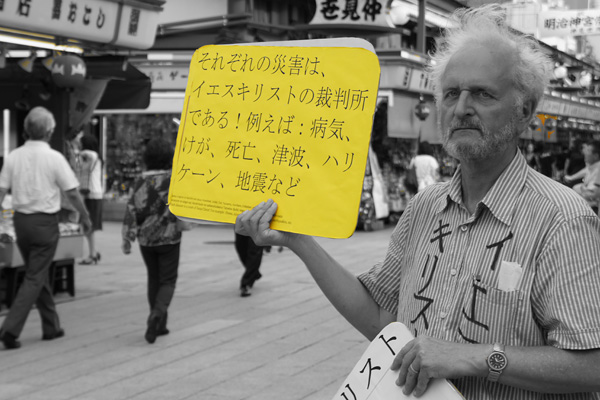 それぞれの災害は、
イエスキリストの裁判所
である！例えば：病気、
けが、死亡、津波、ハリ
ケーン、地震など
イエ
キリス
リスト
おこし
笹見仲